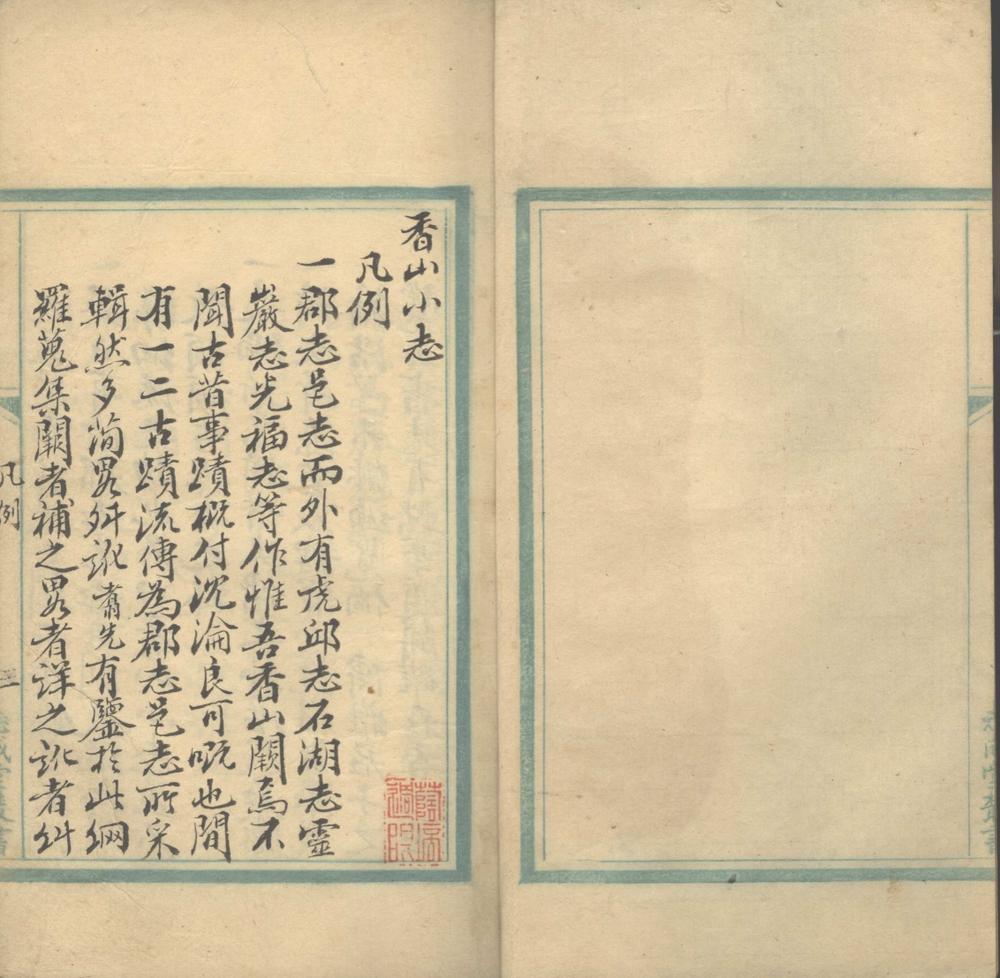 香山小志
凡例
一郡志邑志而外有虎邱志石湖志靈
巖志光福志等作惟吾香山闕焉不
聞古昔事蹟概付沉淪良可嘅也間
有一二古蹟流傳為郡志邑志所采
輯然多簡畧舛訛翥先有鑒於此網
羅蒐集闕者補之畧者詳之訛者糾
凡例